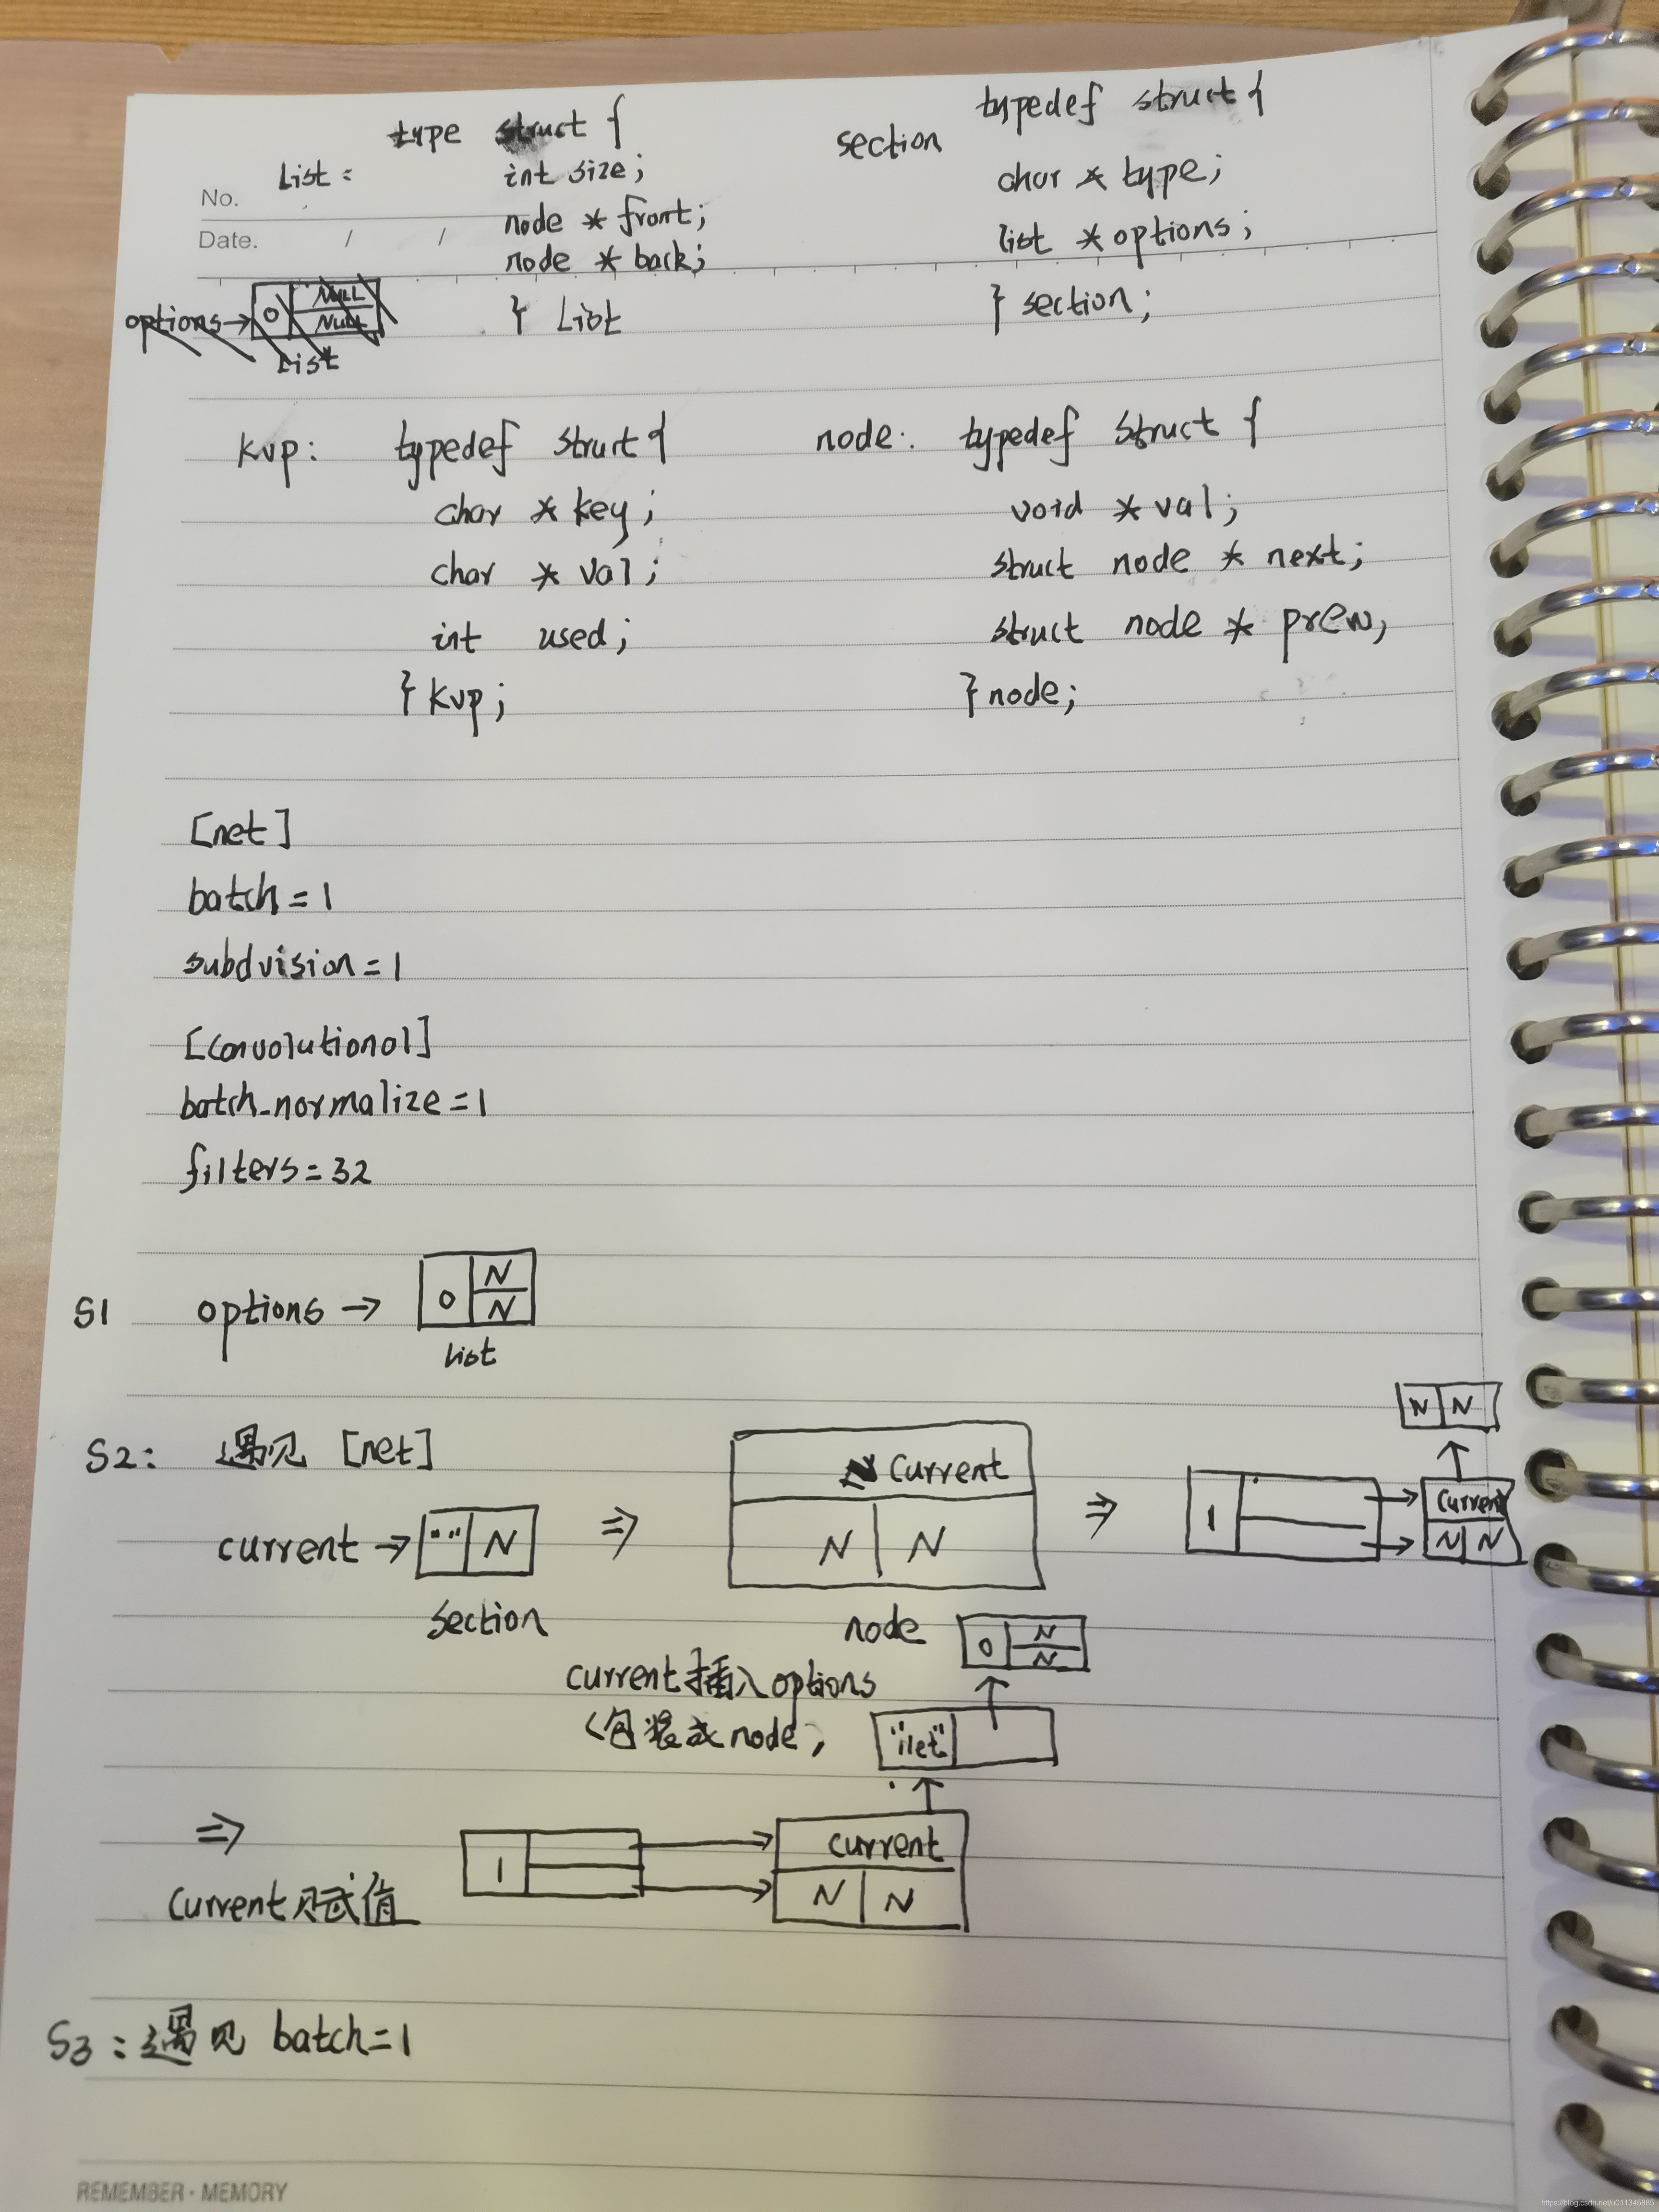 List: type struct {
int size;
node * front;
node * back;
} List
section typedef struct {
char * type;
list * options;
} section;
No.
Date. / /
options→ 0 NULL
NULL
List
kvp: typedef struct {
char * key;
char * val;
int used;
} kvp;
node: typedef struct {
void * val;
struct node * next;
struct node * prev;
} node;
[net]
batch=1
subdvision=1
[convolutional]
batch_normalize=1
filters=32
S1 options → 0 N
N
List
S2: 遇见 [net]
current → "" N
section
⇒
current
N N
node
⇒
1
current
N N
N N
current插入options
(包装成node)
0 N
N
"net"
⇒
current赋值
1
current
N N
S3:遇见 batch=1
REMEMBER · MEMORY
https://blog.csdn.net/u011345885